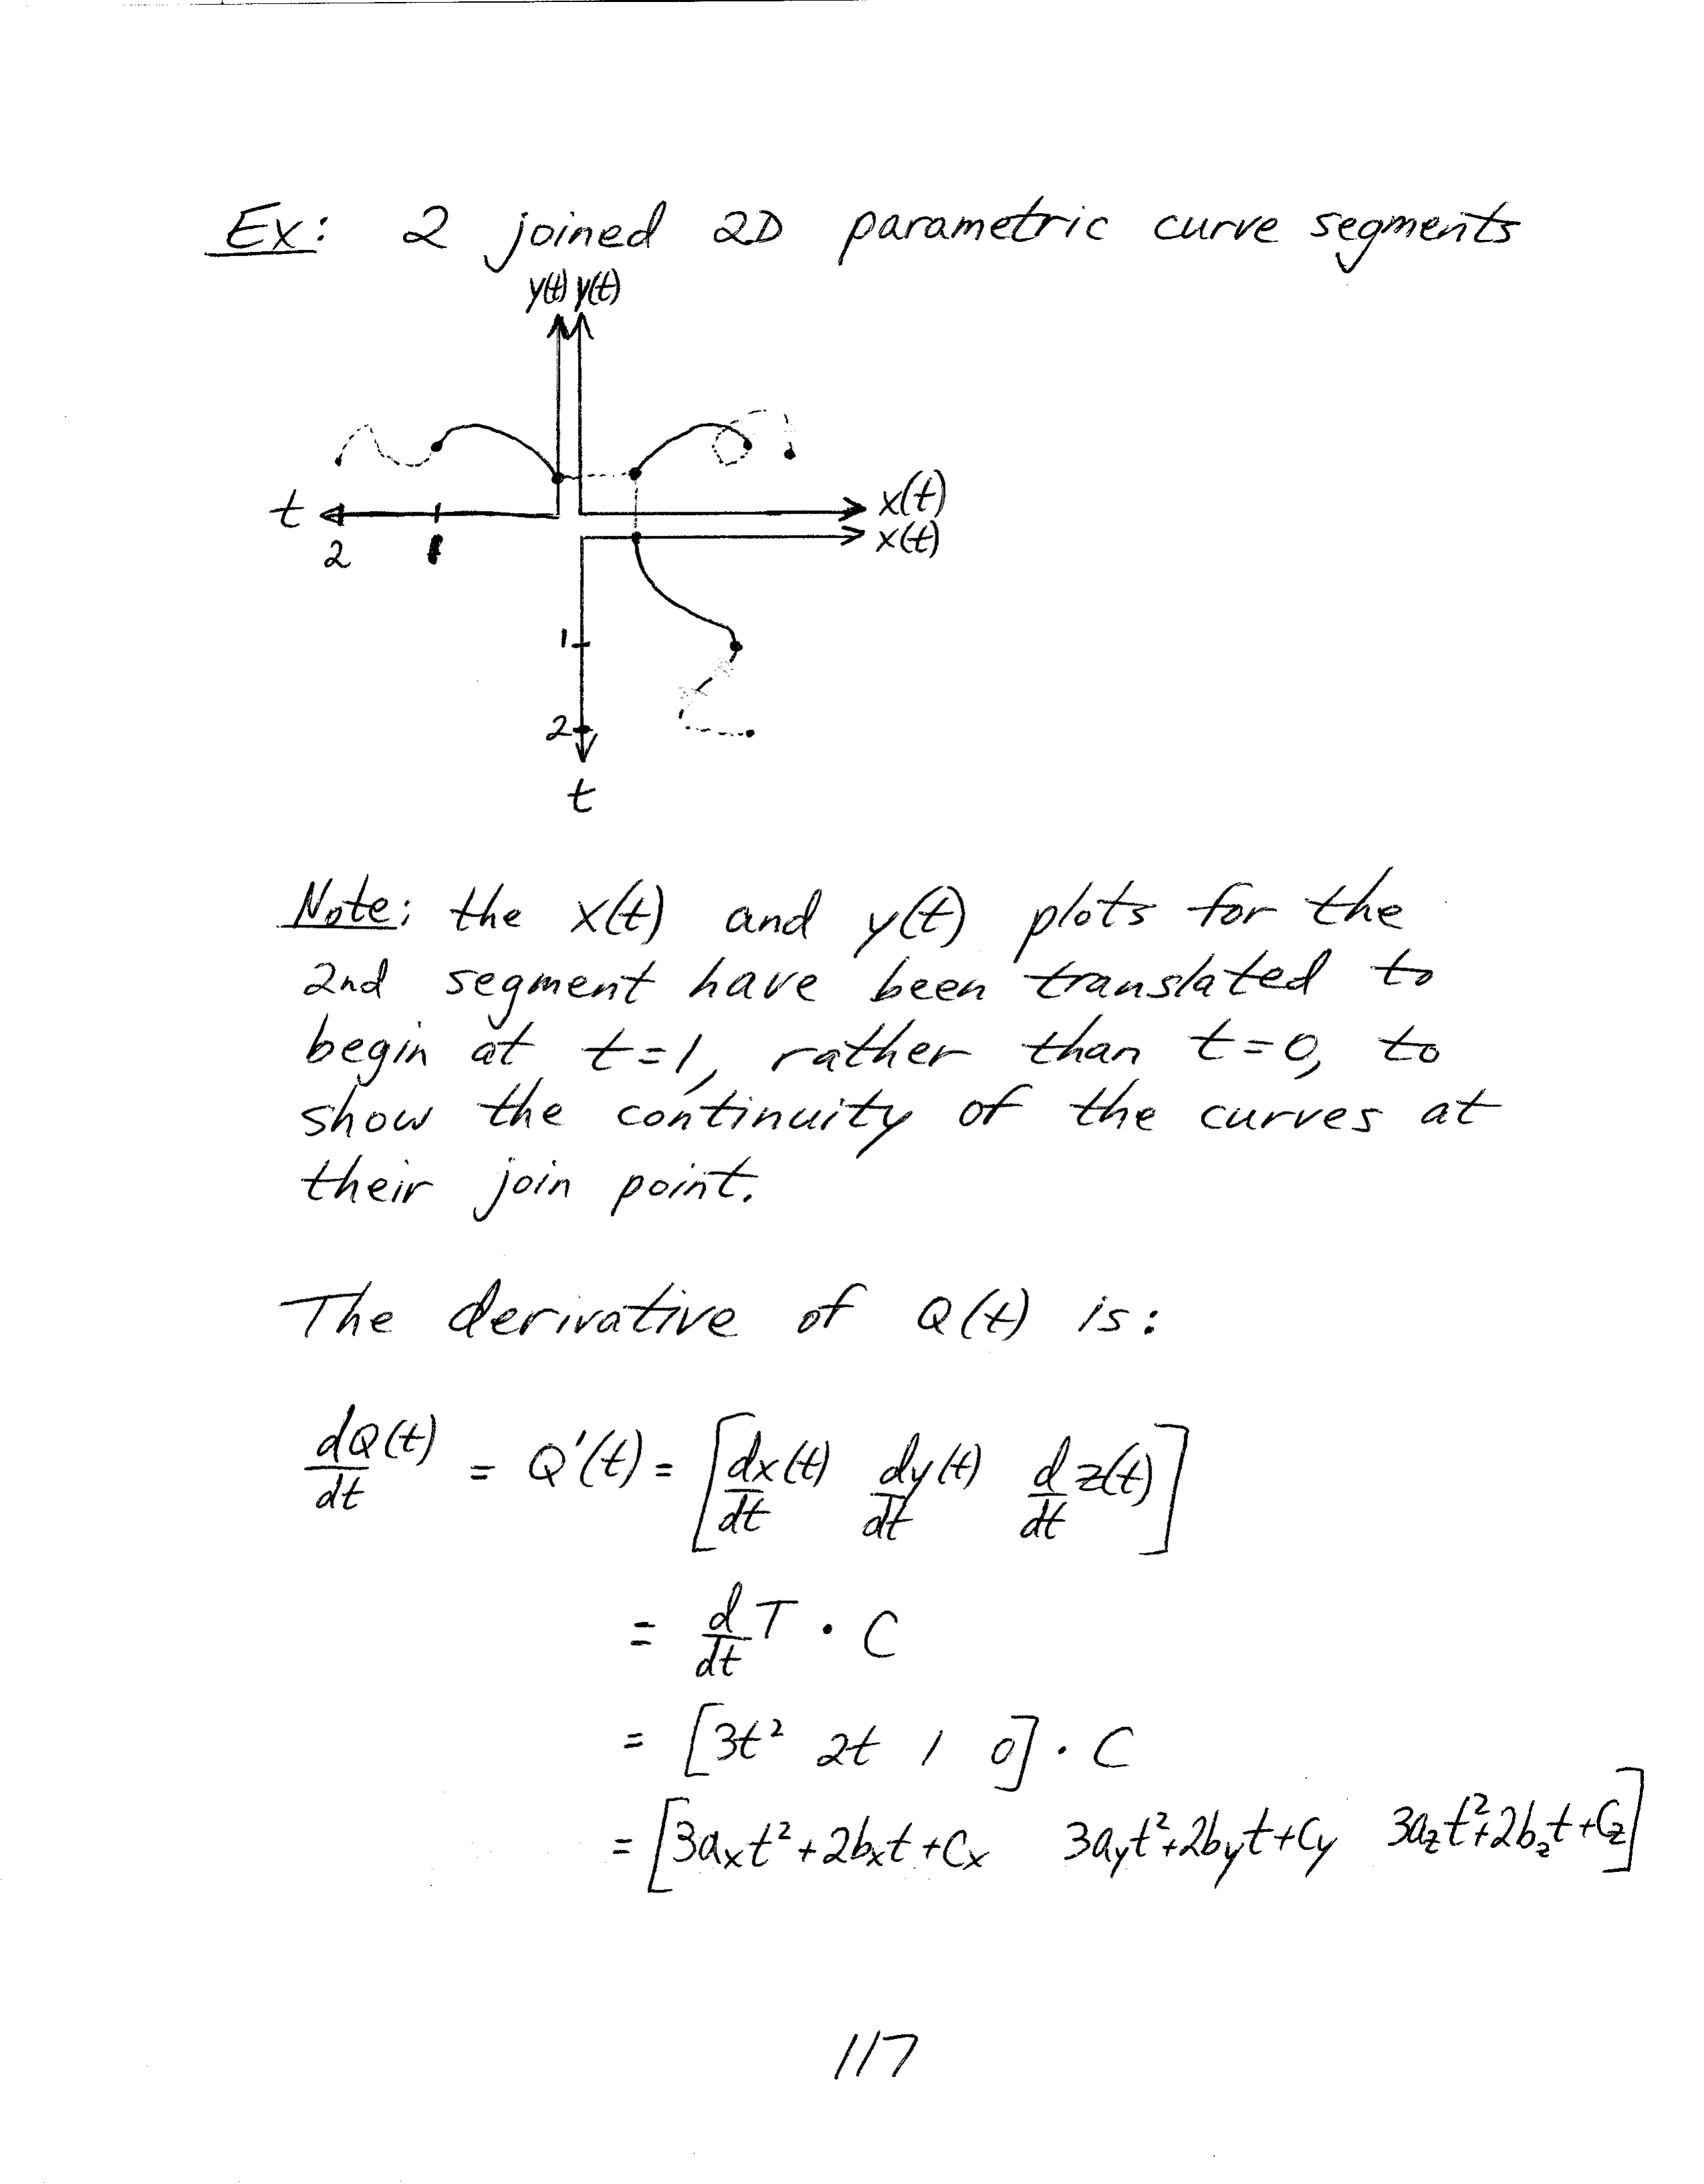 Ex: 2 joined 2D parametric curve segments
y(t) y(t)
t
x(t)
x(t)
2 1
1
2
t
Note: the x(t) and y(t) plots for the
2nd segment have been translated to
begin at t=1, rather than t=0, to
show the continuity of the curves at
their join point.
The derivative of Q(t) is:
dQ(t)/dt = Q'(t) = [dx(t)/dt dy(t)/dt d/dt z(t)]
= d/dt T · C
= [3t² 2t 1 0] · C
= [3aₓt²+2bₓt+cₓ 3a_yt²+2b_yt+c_y 3a_zt²+2b_zt+c_z]
117